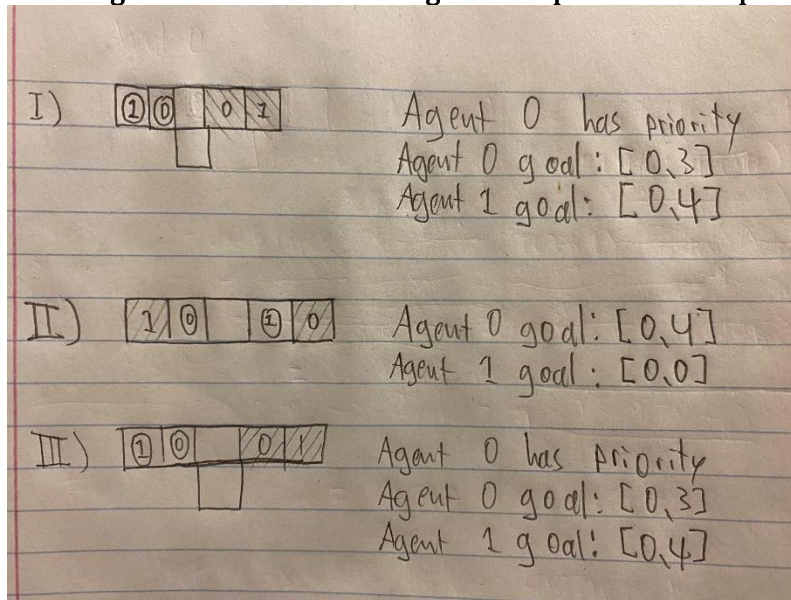 I) 1 0 0 1 Agent 0 has priority
Agent 0 goal: [0,3]
Agent 1 goal: [0,4]
II) 1 0 1 0 Agent 0 goal: [0,4]
Agent 1 goal: [0,0]
III) 1 0 0 1 Agent 0 has priority
Agent 0 goal: [0,3]
Agent 1 goal: [0,4]